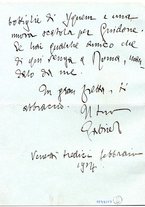 bottiglie di Yquem e una
nuova scatola per Pindone.
Se hai qualche amico che
di qui venga a Roma, man-
dalo da me.
In gran fretta, ti
abbraccio. Il tuo
Gabriel
Venerdì tredici febbraio